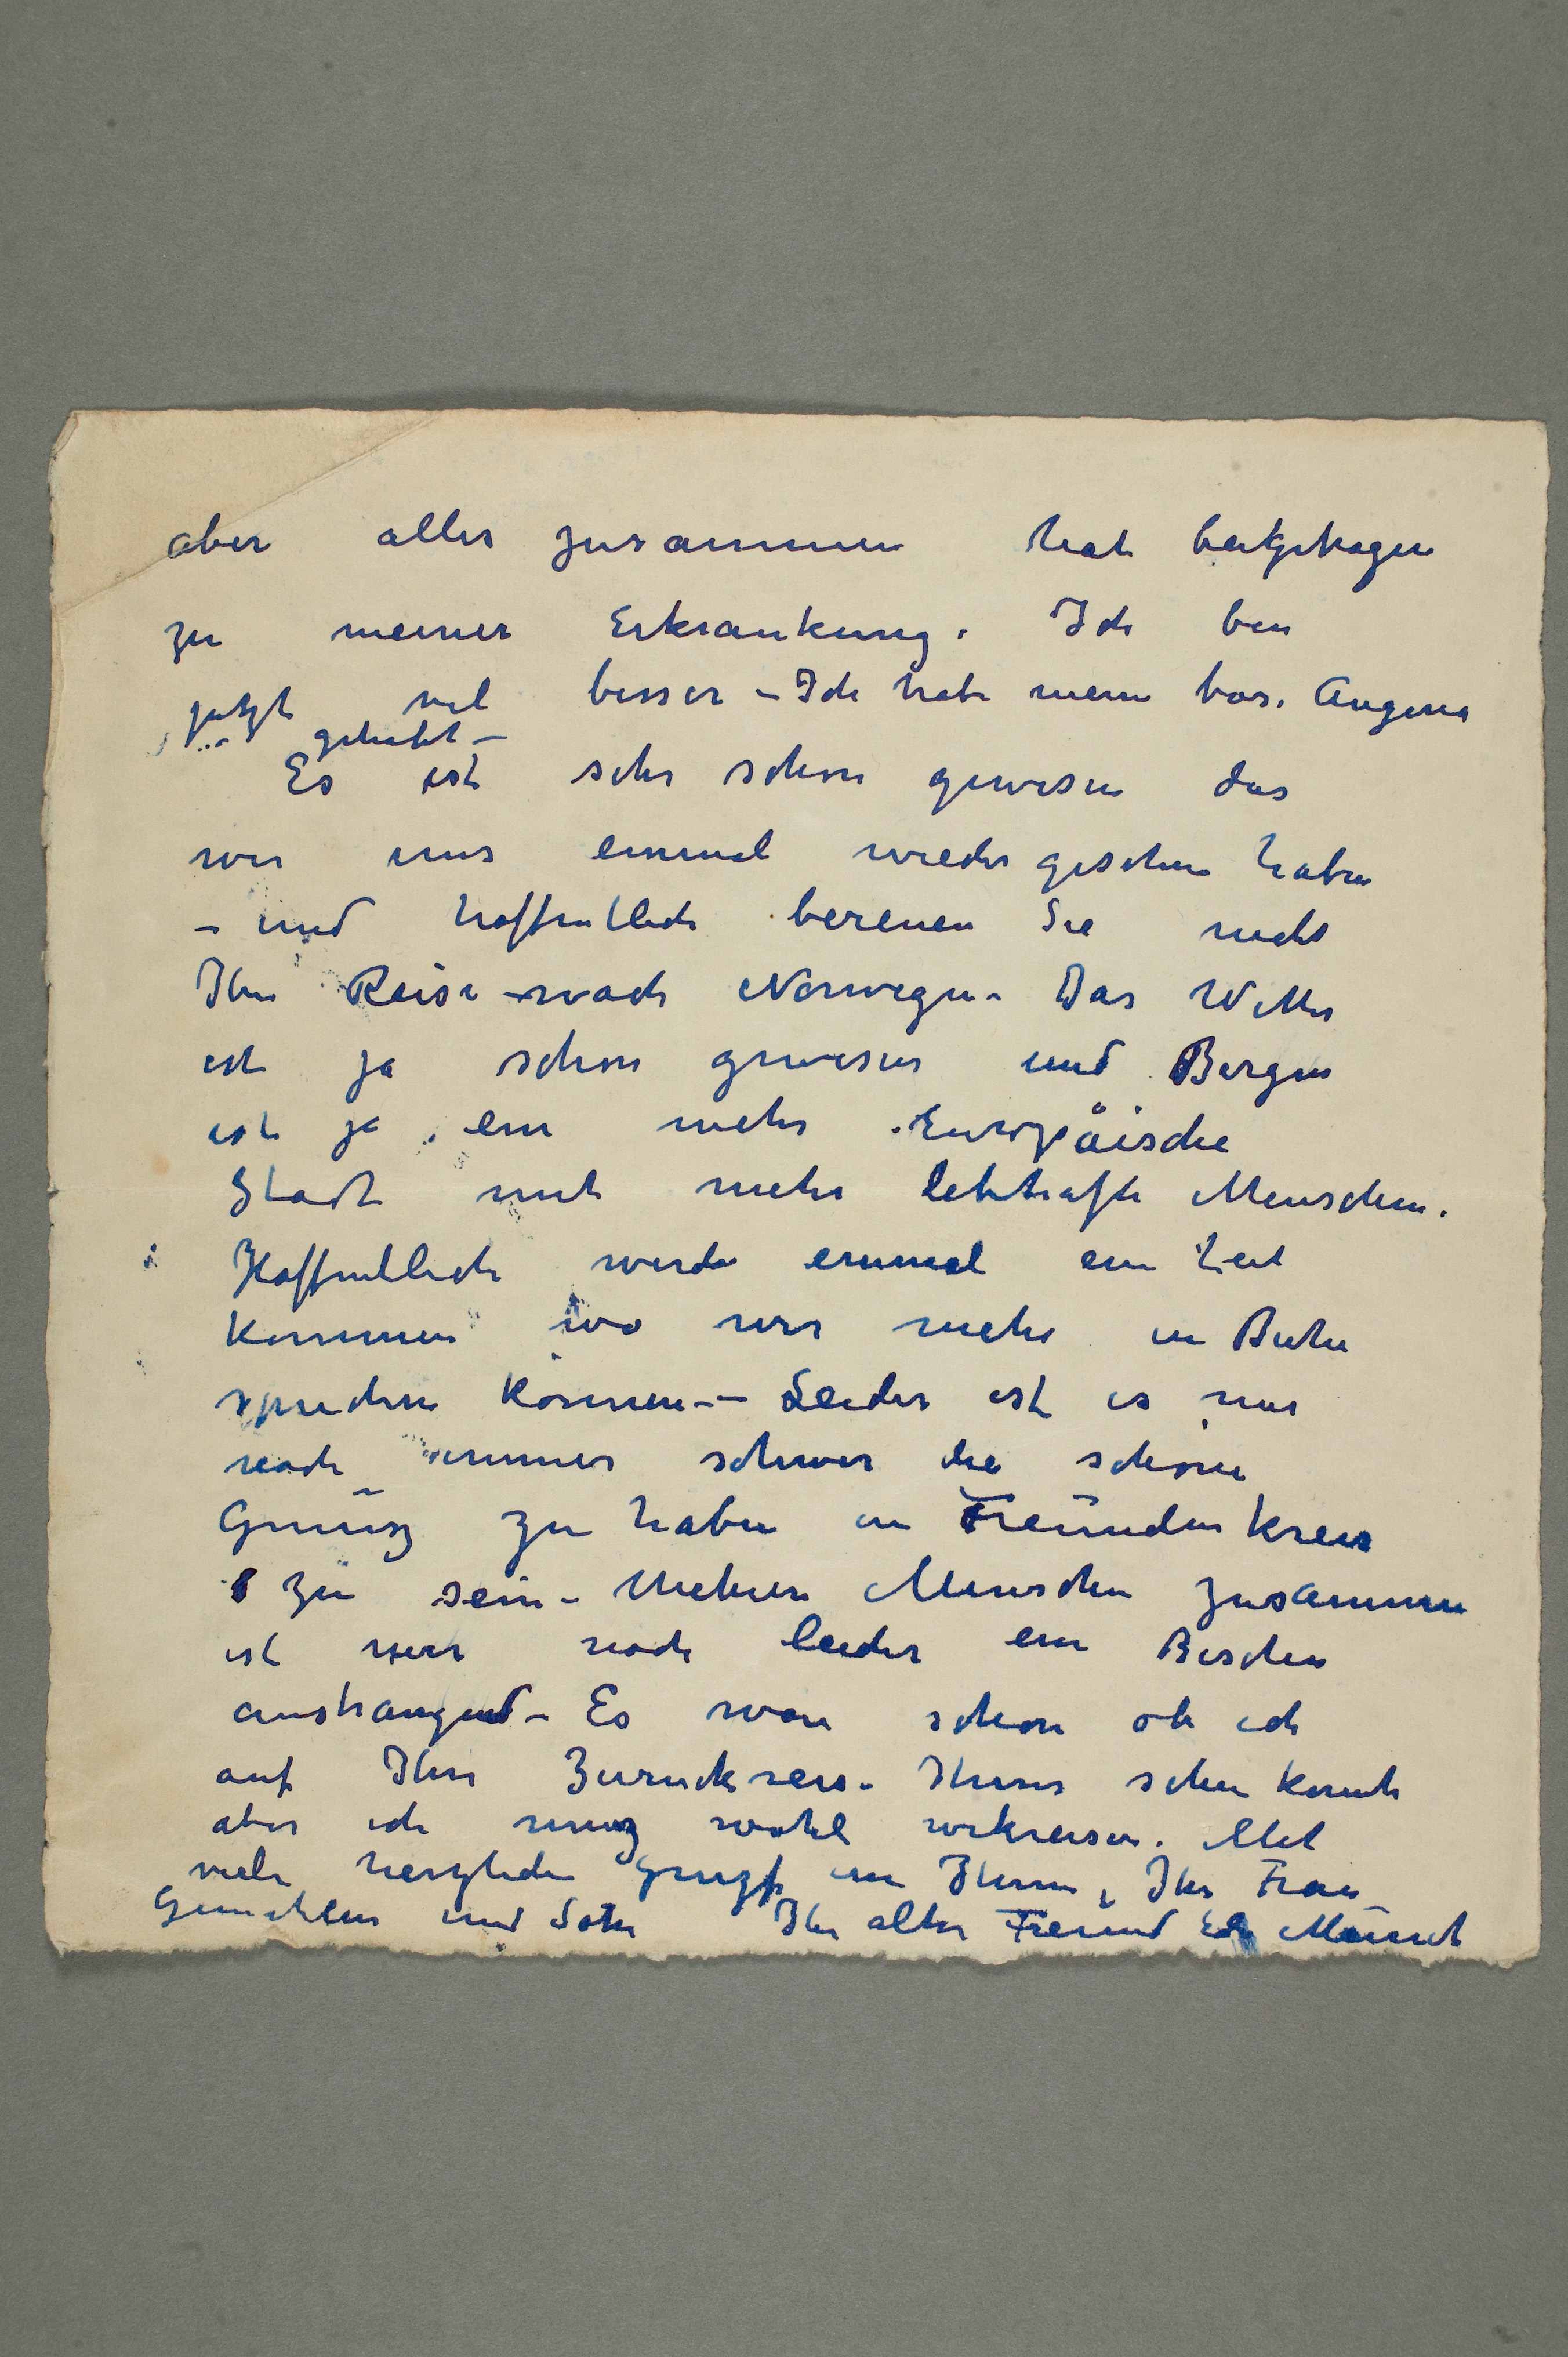 aber alles zusammen hat beitgetragen
zu meiner Erkrankung. Ich bin
jetzt viel besser – Ich habe meine bös. Augina
gehabt –
Es ist sehr schön gewesen das
wir uns einmal wieder gesehen haben
– und hoffentlich bereuen Sie nicht
Ihre Reise nach Norwegen – Das Wetter
ist ja schön gewesen und Bergen
ist ja ein mehr Europäische
Stadt mit mehr lebhafte Menschen.
Hoffentlich werde einmal ein Zeit
kommen wo wir mehr in Ruhe
sprechen können –– Leider ist es mir
noch immer schwer die schöne
Genüsz zu haben in Freundenkreis
zu sein – Mehrere Menschen zusammen
ist mir noch leider ein Bischen
anstrangend – Es wäre schön ob ich
auf Ihre Zurückreise Ihnen sehen konnte
aber ich musz wohl wekreisen. Mit
viele herzliche Grusze an Ihnen, Ihr Frau
Gemahlin und Sohn Ihr alter Freund Ed Münch